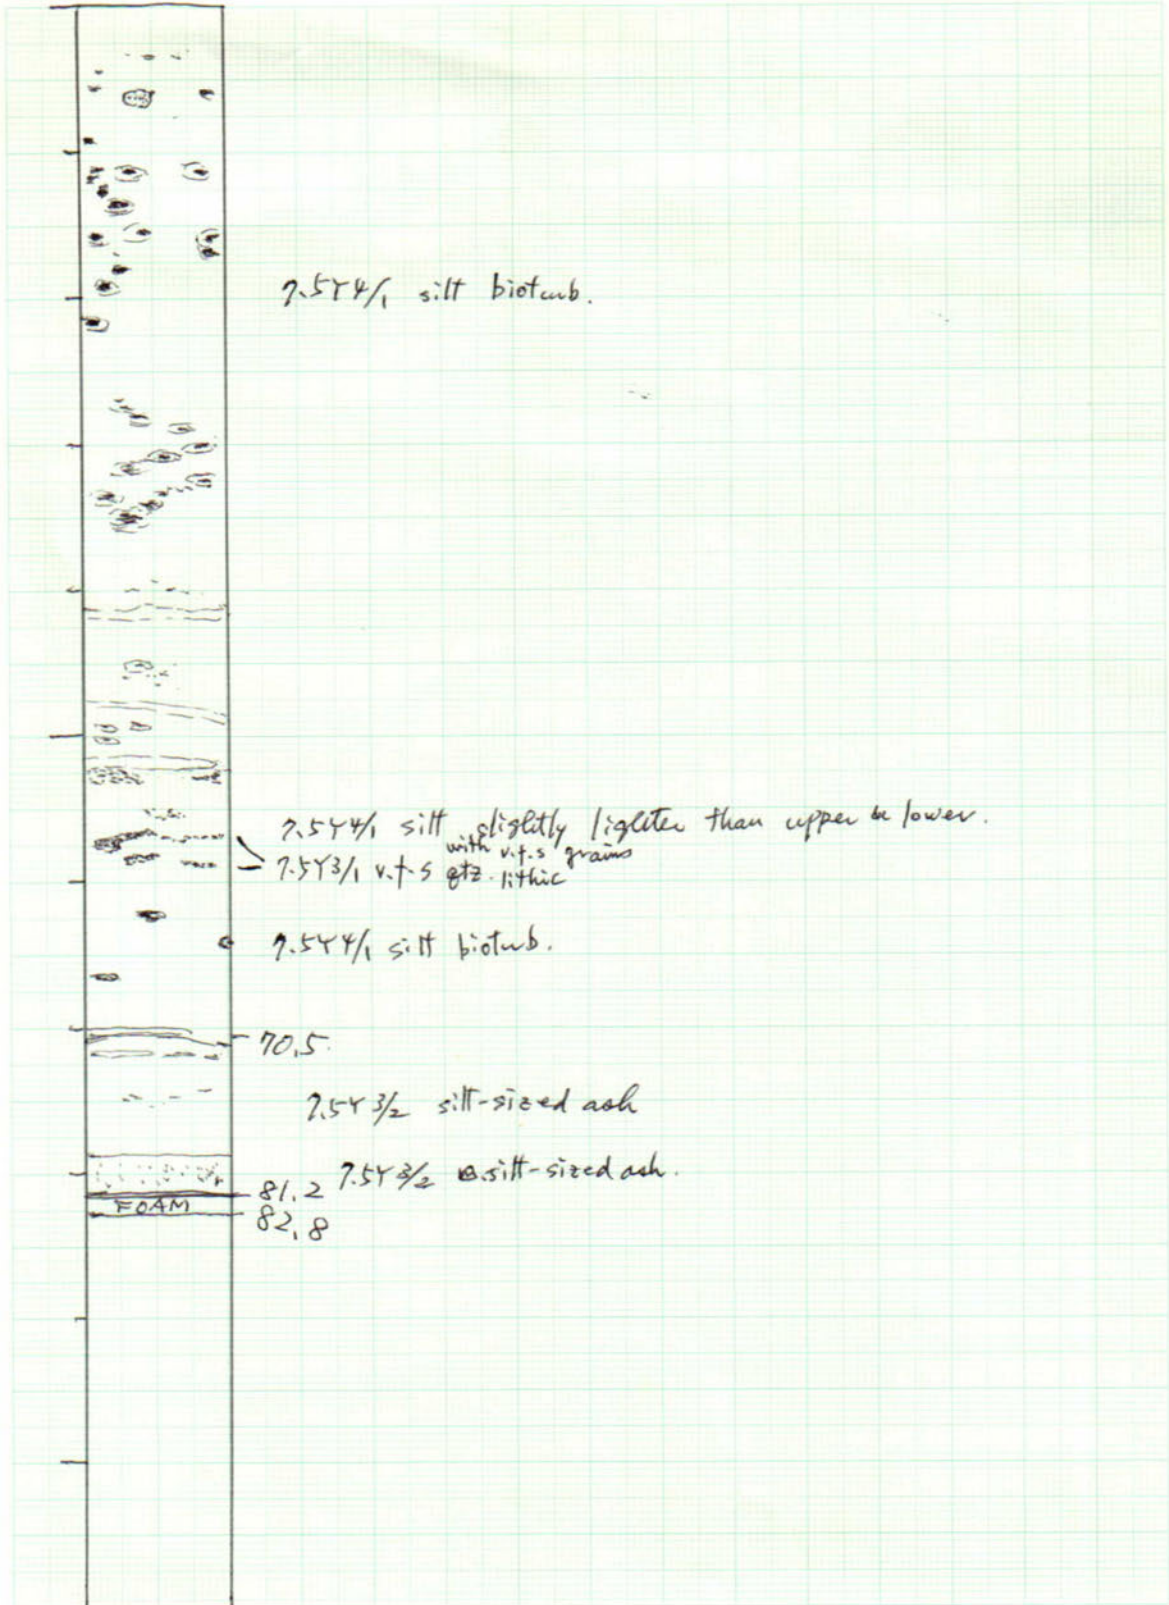 7.5Y4/1 silt bioturb.
7.5Y4/1 silt slightly lighter than upper & lower.
with v.f.s grains
7.5Y3/1 v.f.s qtz. lithic
7.5Y4/1 silt bioturb.
70.5
7.5Y3/2 silt-sized ash
7.5Y3/2 silt-sized ash.
81.2
FOAM
82.8